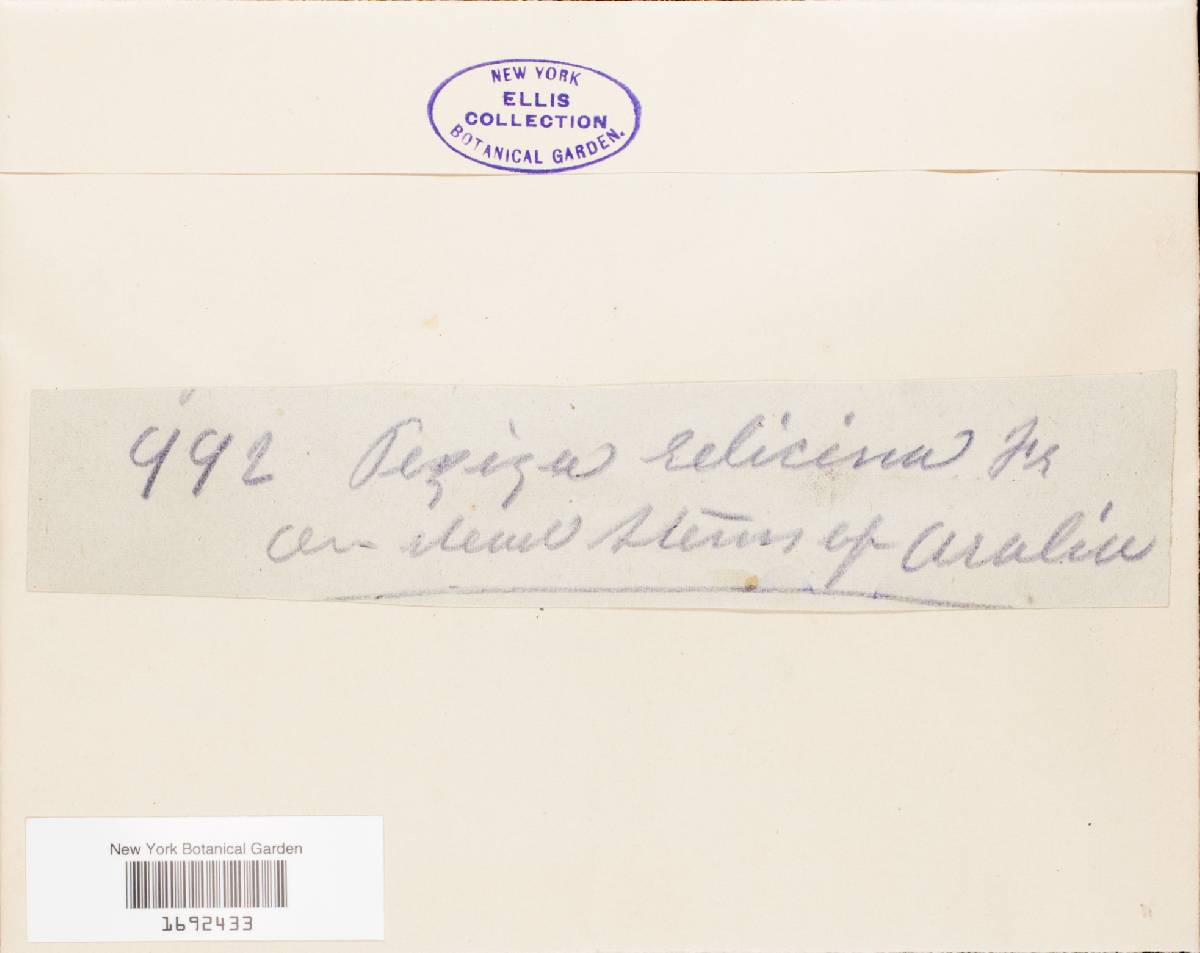 NEW YORK
ELLIS
COLLECTION
BOTANICAL GARDEN.
992 Peziza relicina Fr
on dead stems of Aralia
New York Botanical Garden
1692433